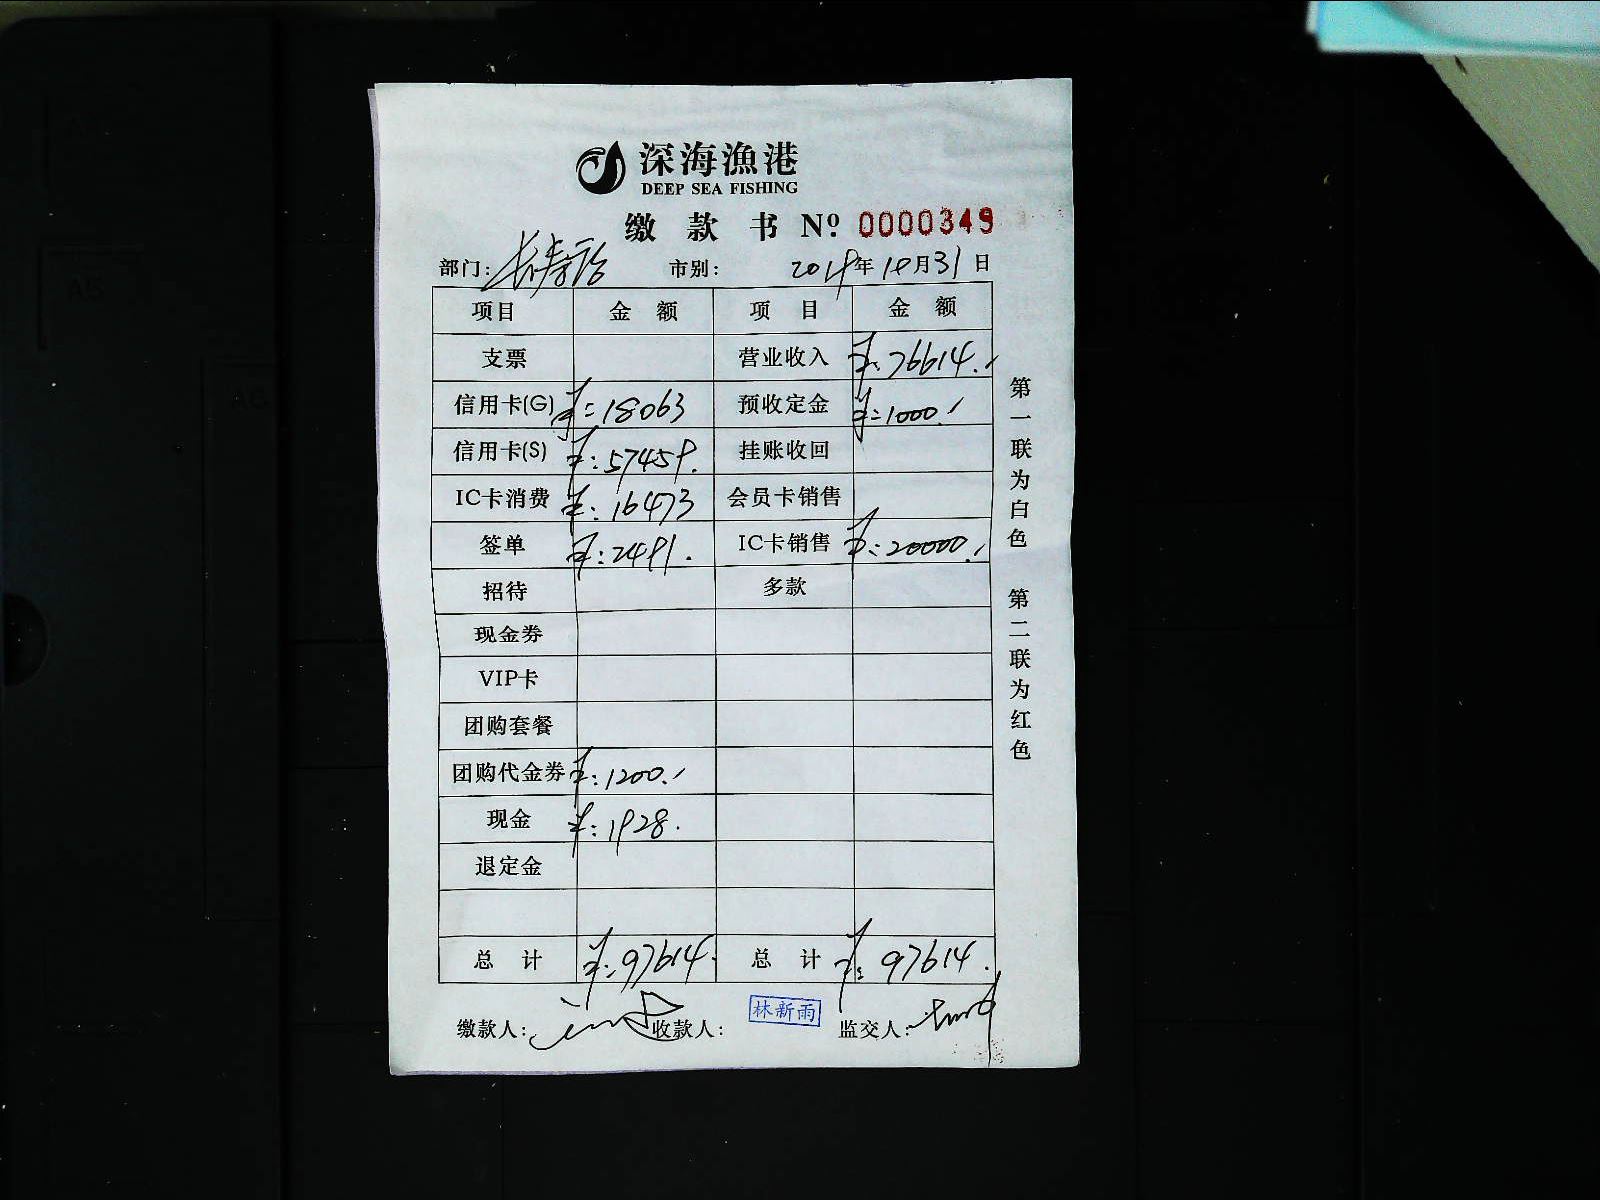 深海漁港
DEEP SEA FISHING
缴款书 Nº 0000349
部门: 长寿路 市别: 2019年10月31日
项目 金额 项目 金额
支票 营业收入 ¥: 76614.
信用卡(G) ¥: 18063 预收定金 ¥: 1000.
信用卡(S) ¥: 57459. 挂账收回
IC卡消费 ¥: 16473 会员卡销售
签单 ¥: 2491. IC卡销售 ¥: 20000.
招待 多款
现金券
VIP卡
团购套餐
团购代金券 ¥: 1200.
现金 ¥: 1928.
退定金
总计 ¥: 97614. 总计 ¥: 97614.
缴款人: 收款人: 林新雨 监交人:
第一联为白色 第二联为红色